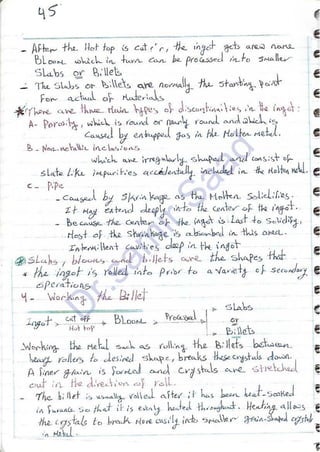 45
- After the Hot top is cut off, the ingot gets a new name
Bloom which in turn can be processed into smaller
Slabs or Billets
- The Slabs or Billets are normally the starting point
for actual of Materials
* There are three Main types of discontinuities in the ingot:
A- Porosity, which is round or nearly round and which is
caused by entrapped gas in the Molten metal.
B- Non-metallic inclusions
which are irregularly shaped and consist of
slate like impurities accidentally included in the Molten Metal.
C- Pipe
- Caused by Shrinkage as the Molten Solidifies.
It May extend deeply into the center of the ingot.
- Because the center of the ingot is last to Solidify,
Most of the Shrinkage is absorbed in this area.
Intermittent cavities deep in the ingot
* Slabs, blooms and billets are the shapes that
the ingot is rolled into Prior to a variety of secondary
operations
4- Working the Billet
Ingot → cut off Hot top → Bloom → Processed → Slabs
or
Billets
- Working the Metal such as rolling the Billets between
heavy rollers to desired shape, breaks these crystals down.
A finer grain is formed and crystals are stretched
out in the direction of roll.
- The billet is usually rolled after it has been heat-soaked
in furnace so that it is evenly heated throughout. Heating allows
the crystals to break More easily into smaller grain-shaped crystals
in Metal.